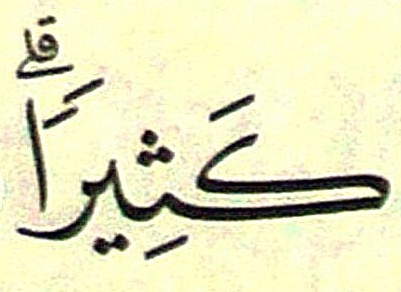 كَثِيرًاۗ